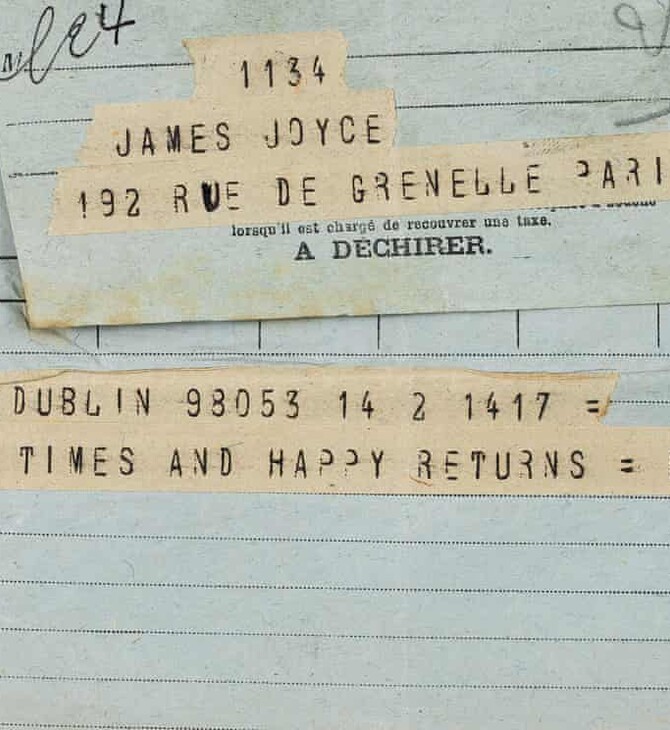 1134
JAMES JOYCE
192 RUE DE GRENELLE PARI
lorsqu'il est chargé de recouvrer une taxe.
A DÉCHIRER.
DUBLIN 98053 14 2 1417 =
TIMES AND HAPPY RETURNS =